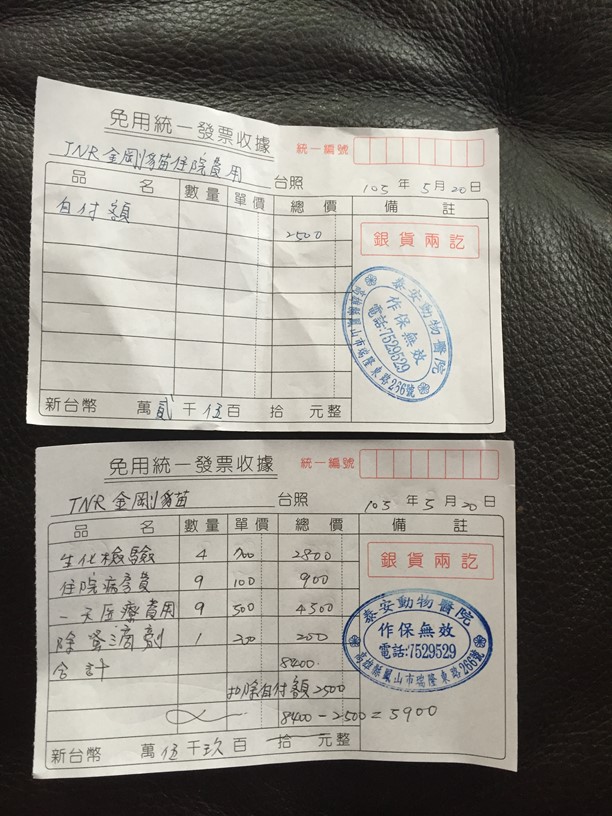 免用統一發票收據
統一編號
TNR 金剛貓住院費用 台照 105年5月20日
品名 數量 單價 總價 備註
自付額 2500
銀貨兩訖
泰安動物醫院
作保無效
電話:7529529
高雄縣鳳山市瑞隆東路266號
新台幣 萬貳千伍百 拾 元整
免用統一發票收據
統一編號
TNR 金剛貓 台照 105年5月20日
品名 數量 單價 總價 備註
生化檢驗 4 700 2800
住院病房費 9 100 900
一天医療費用 9 500 4500
除蚤滴劑 1 200 200
合計 8400
扣除自付額2500
8400-2500=5900
銀貨兩訖
泰安動物醫院
作保無效
電話:7529529
高雄縣鳳山市瑞隆東路266號
新台幣 萬伍千玖百 拾 元整